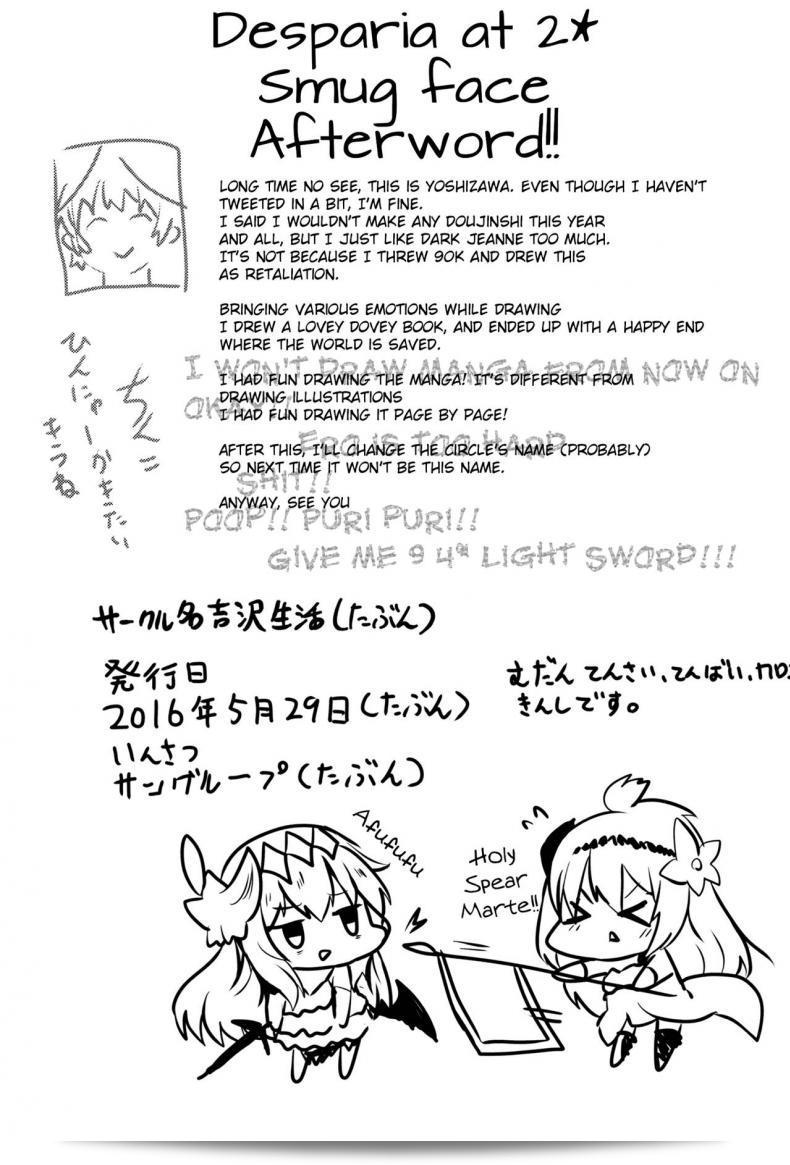 Desparia at 2*
Smug face
Afterword!!
LONG TIME NO SEE, THIS IS YOSHIZAWA. EVEN THOUGH I HAVEN'T
TWEETED IN A BIT, I'M FINE.
I SAID I WOULDN'T MAKE ANY DOUJINSHI THIS YEAR
AND ALL, BUT I JUST LIKE DARK JEANNE TOO MUCH.
IT'S NOT BECAUSE I THREW 90K AND DREW THIS
AS RETALIATION.
BRINGING VARIOUS EMOTIONS WHILE DRAWING
I DREW A LOVEY DOVEY BOOK, AND ENDED UP WITH A HAPPY END
WHERE THE WORLD IS SAVED.
I WON'T DRAW MANGA FROM NOW ON
OKAY!!
I HAD FUN DRAWING THE MANGA! IT'S DIFFERENT FROM
DRAWING ILLUSTRATIONS
I HAD FUN DRAWING IT PAGE BY PAGE!
ERO IS TOO HARD
SHIT!!
AFTER THIS, I'LL CHANGE THE CIRCLE'S NAME (PROBABLY)
SO NEXT TIME IT WON'T BE THIS NAME.
ANYWAY, SEE YOU
POOP!! PURI PURI!!
GIVE ME 9 4* LIGHT SWORD!!!
ちんこ
ひんにゅーかきたい
きつね
サークル名吉沢生活(たぶん)
発行日
2016年5月29日(たぶん)
いんさつ
サングループ(たぶん)
むだんてんさい、てんばい、カロ
きんしです。
Afufufu
Holy
Spear
Marte!!